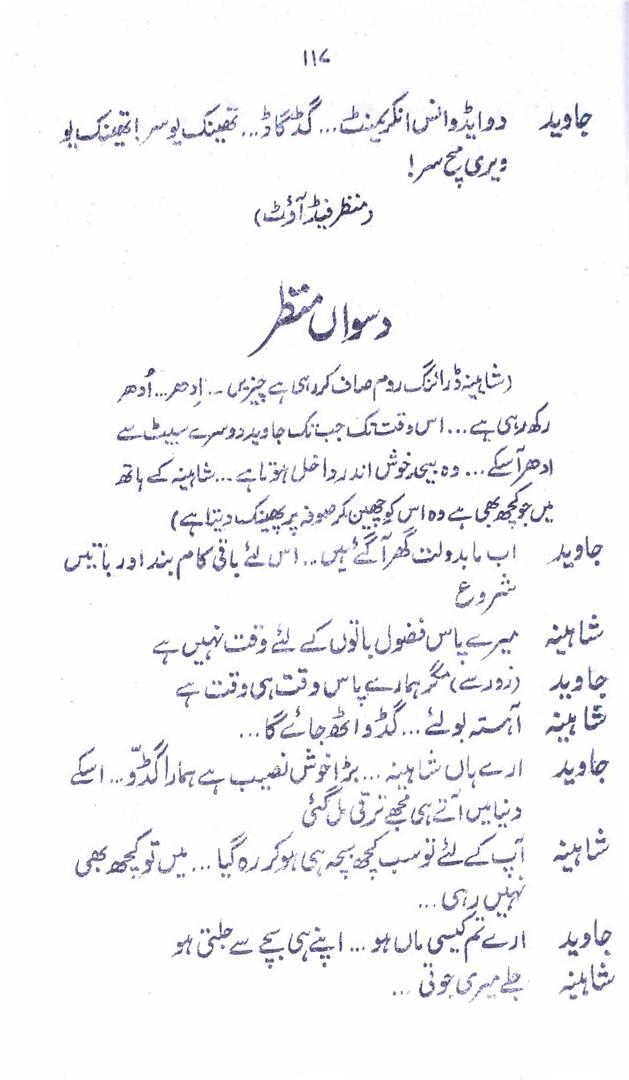 ۱۱۷
جاوید دو ایڈوانس انکریمنٹ... گڈ گاڈ... تھینک یو سر! تھینک یو
ویری مچ سر!
(منظر فیڈ آؤٹ)
دسواں منظر
(شاہینہ ڈرائنگ روم صاف کر رہی ہے چیزیں... اِدھر... اُدھر
رکھ رہی ہے... اس وقت تک جب تک جاوید دوسرے سیٹ سے
ادھر آسکے... وہ بیحد خوش اندر داخل ہوتا ہے... شاہینہ کے ہاتھ
میں جو کچھ بھی ہے وہ اس کو چھین کر صوفہ پر پھینک دیتا ہے)
جاوید اب مابدولت گھر آگئے ہیں... اس لئے باقی کام بند اور باتیں
شروع
شاہینہ میرے پاس فضول باتوں کے لئے وقت نہیں ہے
جاوید (زور سے) مگر ہمارے پاس وقت ہی وقت ہے
شاہینہ آہستہ بولئے... گڈو اٹھ جائے گا...
جاوید ارے ہاں شاہینہ... بڑا خوش نصیب ہے ہمارا گڈّو... اسکے
دنیا میں آتے ہی مجھے ترقی مل گئی
شاہینہ آپ کے لئے تو سب کچھ بچہ ہی ہو کر رہ گیا... میں تو کچھ بھی
نہیں رہی...
جاوید ارے تم کیسی ماں ہو... اپنے ہی بچے سے جلتی ہو
شاہینہ جلے میری جوتی...